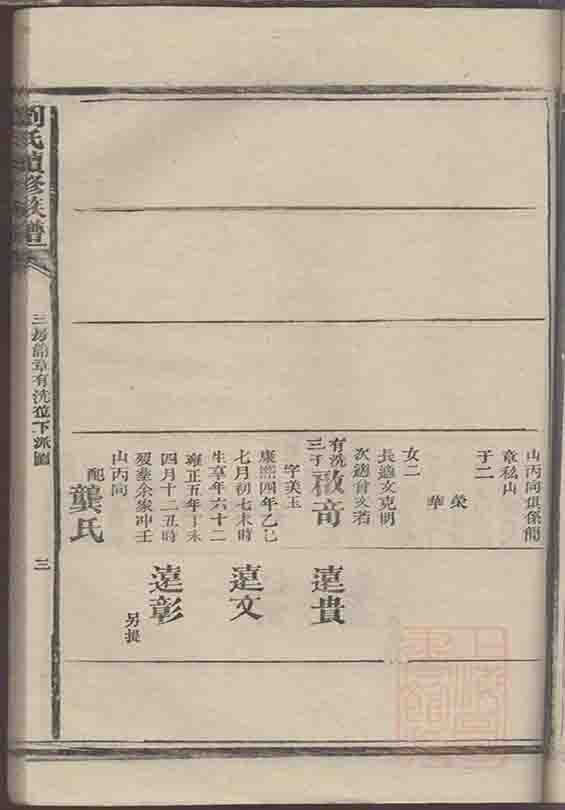 山丙向俱係簡
章私山
子二
榮
華
女二
長適文克明
次適曾文若
有洗
三子
啟奇
字美玉
康熙四年乙巳
七月初七未時
生享年六十二
雍正五年丁未
四月十二丑時
歿塟余家冲壬
山丙向
配
龔氏
遠貴
遠文
遠彰
另提
劉氏續修族譜
三房簡章有洗位下派圖
三